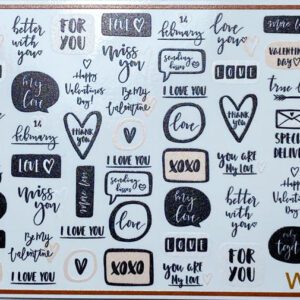 better
with
you
FOR
YOU
LOVE
14
february
love
you
more love
VALENTINE
DAY
my
love
miss
you
Happy
Valentines
Day!
Be My
Valentine
sending
kisses
LOVE
true
14
february
THANK
YOU
I LOVE YOU
love
my
love
SPECIAL
DELIVER
LOVE
miss
you
more love
sending
kisses
XOXO
you are
My LOVE
Happy
Valentines
Day!
better
with
you
Be My
Valentine
I LOVE YOU
love
THANK
YOU
my
love
I LOVE YOU
XOXO
LOVE
you are
My LOVE
FOR
YOU